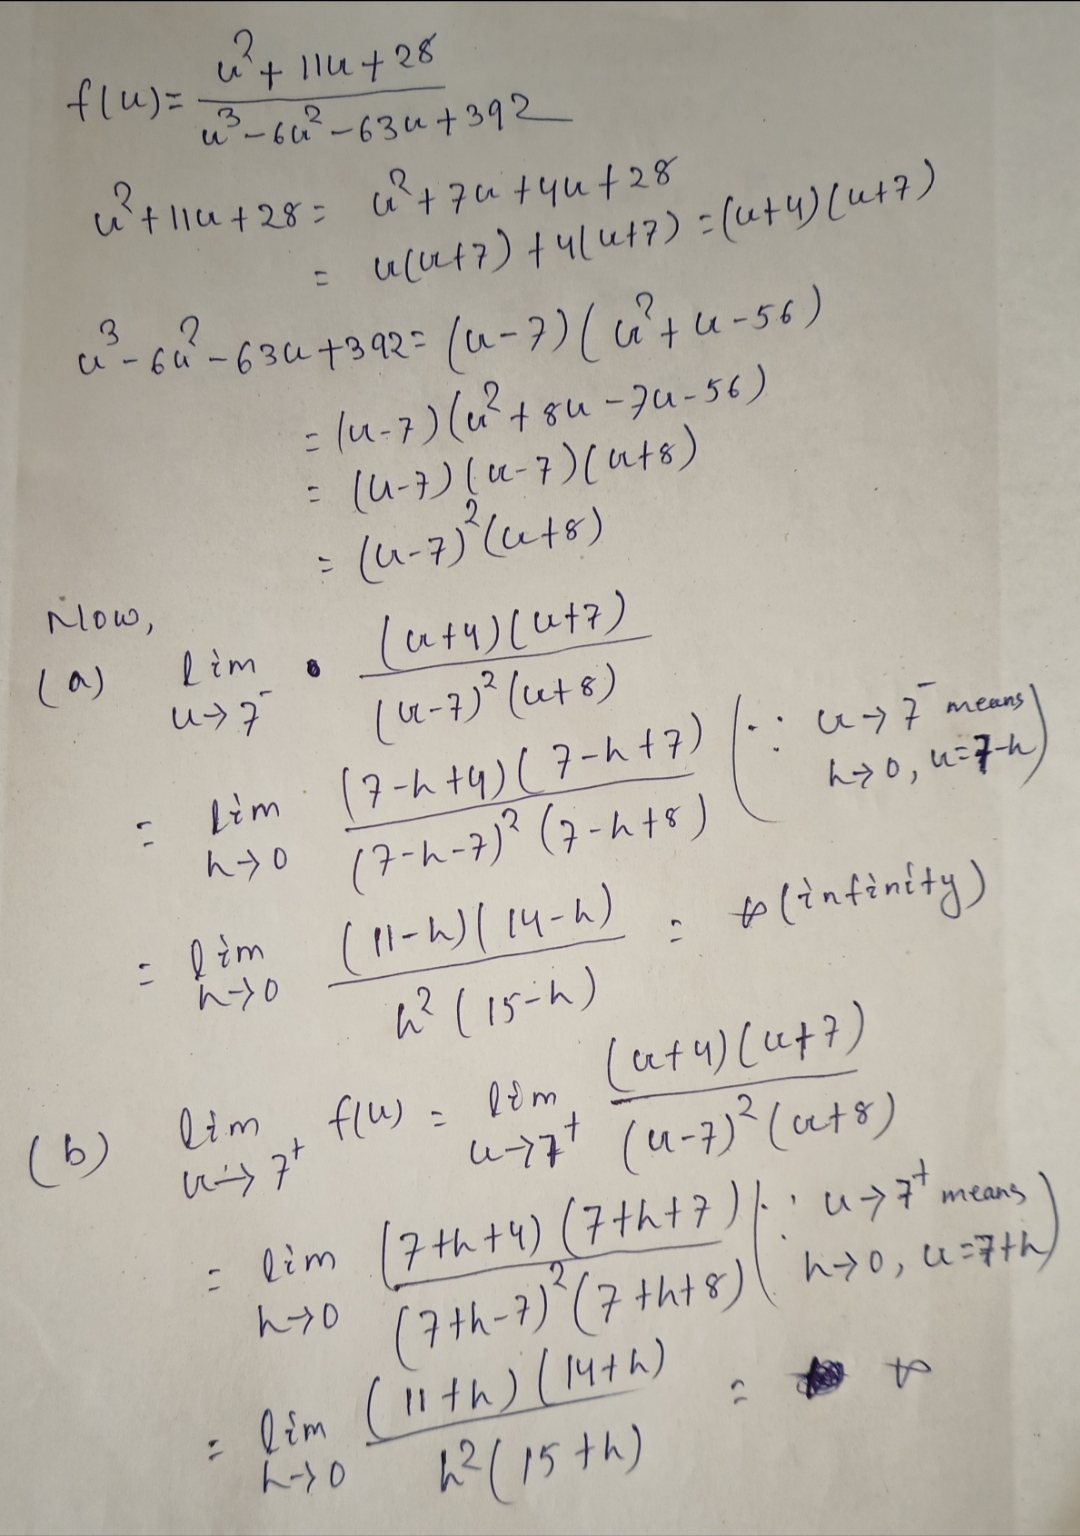 f(u) = (u² + 11u + 28) / (u³ - 6u² - 63u + 392)
u² + 11u + 28 = u² + 7u + 4u + 28
= u(u+7) + 4(u+7) = (u+4)(u+7)
u³ - 6u² - 63u + 392 = (u-7)(u² + u - 56)
= (u-7)(u² + 8u - 7u - 56)
= (u-7)(u-7)(u+8)
= (u-7)²(u+8)
Now,
(a) lim u→7⁻ (u+4)(u+7) / (u-7)²(u+8)
= lim h→0 (7-h+4)(7-h+7) / (7-h-7)²(7-h+8) (∵ u→7⁻ means h→0, u=7-h)
= lim h→0 (11-h)(14-h) / h²(15-h) = ∞ (infinity)
(b) lim u→7⁺ f(u) = lim u→7⁺ (u+4)(u+7) / (u-7)²(u+8)
= lim h→0 (7+h+4)(7+h+7) / (7+h-7)²(7+h+8) (∵ u→7⁺ means h→0, u=7+h)
= lim h→0 (11+h)(14+h) / h²(15+h) = ∞